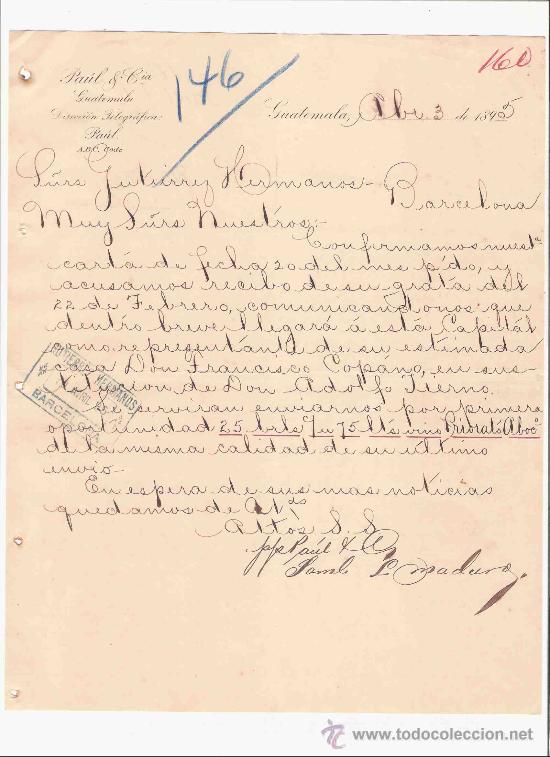 160
146
Paúl & Cía
Guatemala
Dirección Telegráfica:
Paúl
A.B.C. Code
Guatemala, Abr. 3 de 1895
Sürs Gutiérrez Hermanos.-
Barcelona
Muy Sürs Nuestros:-
Confirmamos nuestª
carta de fecha 20 del mes p'do, y
acusamos recibo de su grata del
22 de Febrero, comunicandonos que
dentro breve llegará á esta Capitál
como representante de su estimada
casa Don Francisco Copáno, en sus-
titucion de Don Adolfo Tierno.
Se serviran enviarnos por primera
oportunidad 25 brls %u 75 lts vino Priorato Abocº
de la misma calidad de su ultimo
envio-
En espera de sus mas noticias
quedamos de Uds
Attos S. S.
p/p Paúl & Cª
Saml L. Maduro.
HERMANOS
ABRIL
BARCELONA
TC
www.todocoleccion.net